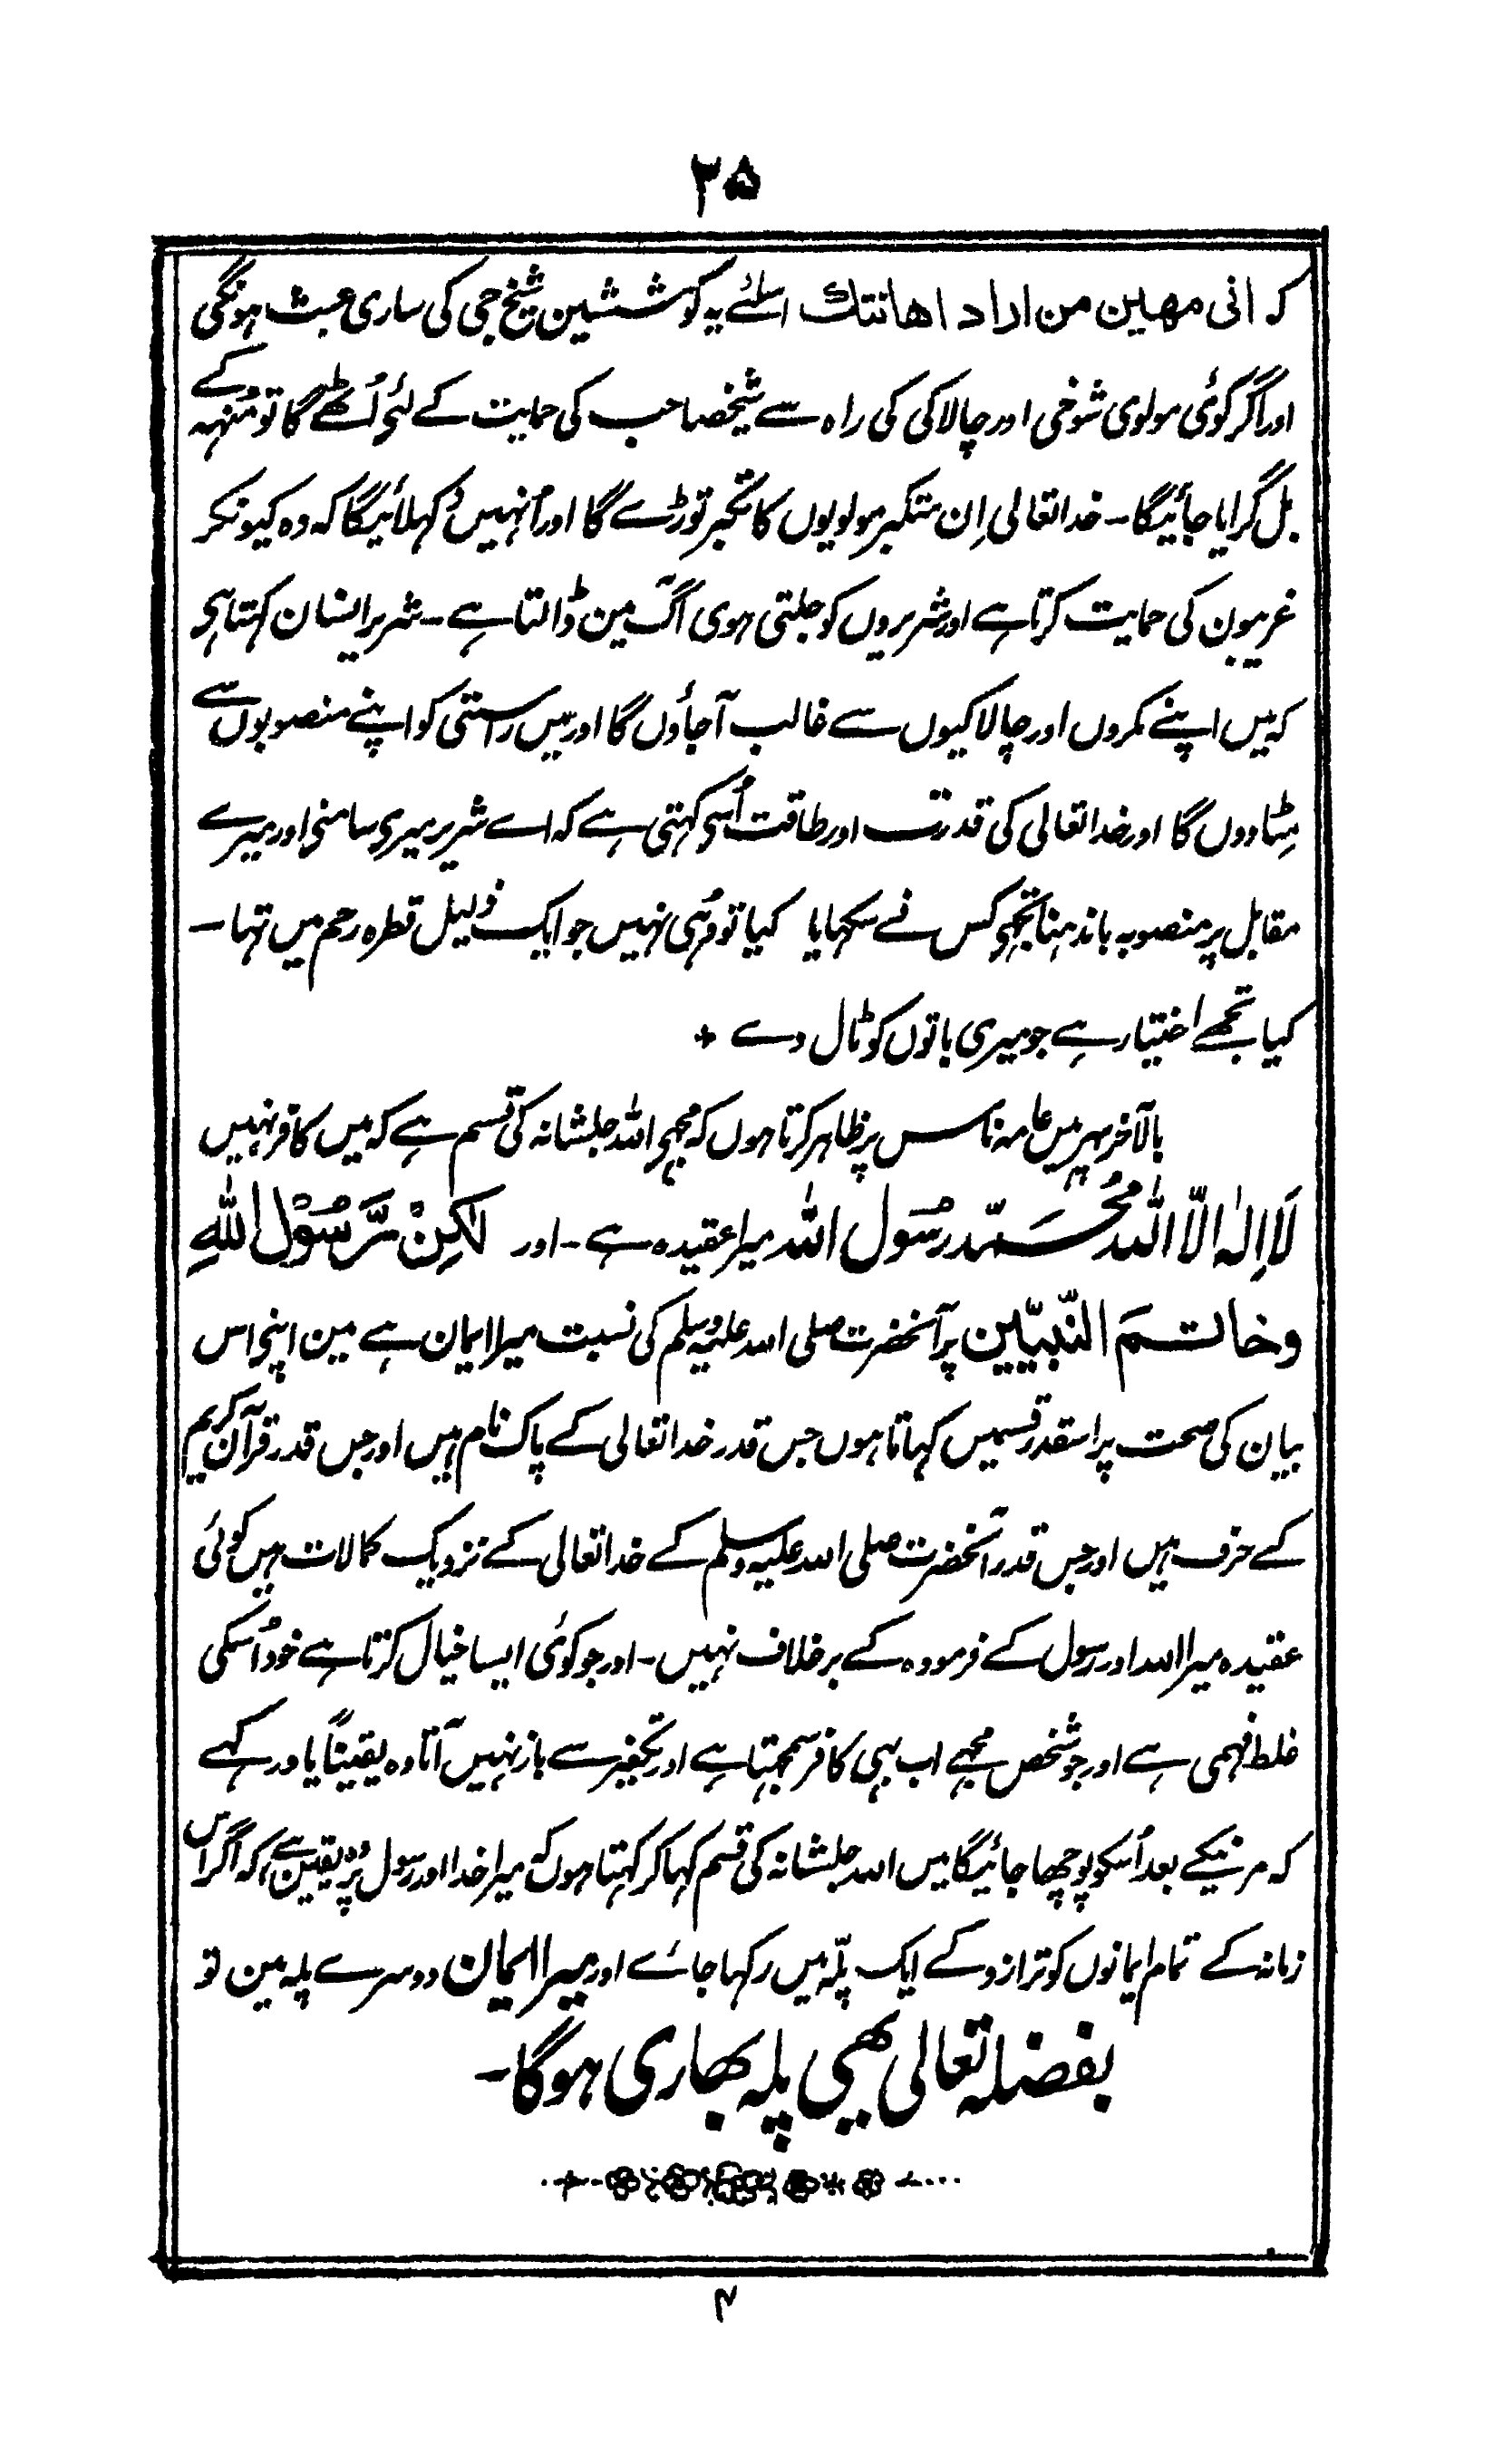 ۲۵
کہ انی مھین من اراد اھانتك اسلئے یہ کوششین شیخ جی کی ساری عبث ہونگی
اور اگر کوئی مولوی شوخی اور چالاکی کی راہ سے شیخصاحب کی حمایت کے لئے اُٹھے گا تو مُنہہ کے
بل گرایا جائیگا۔ خدا تعالی اِن متکبر مولویوں کا تکبر توڑے گا اور اُنہیں دکہلائیگا کہ وہ کیونکر
غریبون کی حمایت کرتا ہے اور شریروں کو جلتی ہوی آگ مین ڈالتا ہے۔ شریر انسان کہتا ہی
کہ میں اپنے مکروں اور چالاکیوں سے غالب آجاؤں گا اور میں راستی کو اپنے منصوبوں سے
مِٹا دوں گا اور خدا تعالی کی قدرت اور طاقت اُسی کہتی ہے کہ اے شریر میری سامنی اور میرے
مقابل پر منصوبہ باندہنا تجھی کس نے سکہایا کیا تو وُہی نہیں جو ایک ذلیل قطرہ رحم میں تہا۔
کیا تجھے اختیار ہے جو میری باتوں کو ٹال دے +
بالآخر پہر میں عامہ ناس پر ظاہر کرتا ہوں کہ مجہی اللہ جلشانہ کی قسم ہے کہ میں کافر نہیں
لَا اِلٰہ الّا اللہ مُحَمَّد رسُول اللہ میرا عقیدہ ہے۔ اور لٰکِنْ رَّسُوْل اللہِ
وخاتمَ النّبیّین پر آنحضرت صلی اللہ علیہ وسلم کی نسبت میرا ایمان ہے مین اپنی اس
بیان کی صحت پر اسقدر قسمیں کہاتا ہوں جس قدر خدا تعالی کے پاک نام ہیں اور جس قدر قرآن کریم
کے حرف ہیں اور جس قدر آنحضرت صلی اللہ علیہ وسلم کے خدا تعالی کے نزدیک کمالات ہیں کوئی
عقیدہ میرا اللہ اور رسول کے فرمودہ کے برخلاف نہیں۔ اور جو کوئی ایسا خیال کرتا ہے خود اُسکی
غلط فہمی ہے اور جو شخص مجہے اب بہی کافر سمجہتا ہے اور تکفیر سے باز نہیں آتا وہ یقیناً یاد رکہے
کہ مرنیکے بعد اُسکو پوچھا جائیگا میں اللہ جلشانہ کی قسم کہا کر کہتا ہوں کہ میرا خدا اور رسول پر وُہ یقین ہے کہ اگر اس
زمانہ کے تمام ایمانوں کو ترازو کے ایک پلّہ میں رکہا جائے اور میرا ایمان دوسرے پلہ مین تو
بفضلہ تعالی یھی پلہ بھاری ہوگا۔
۴